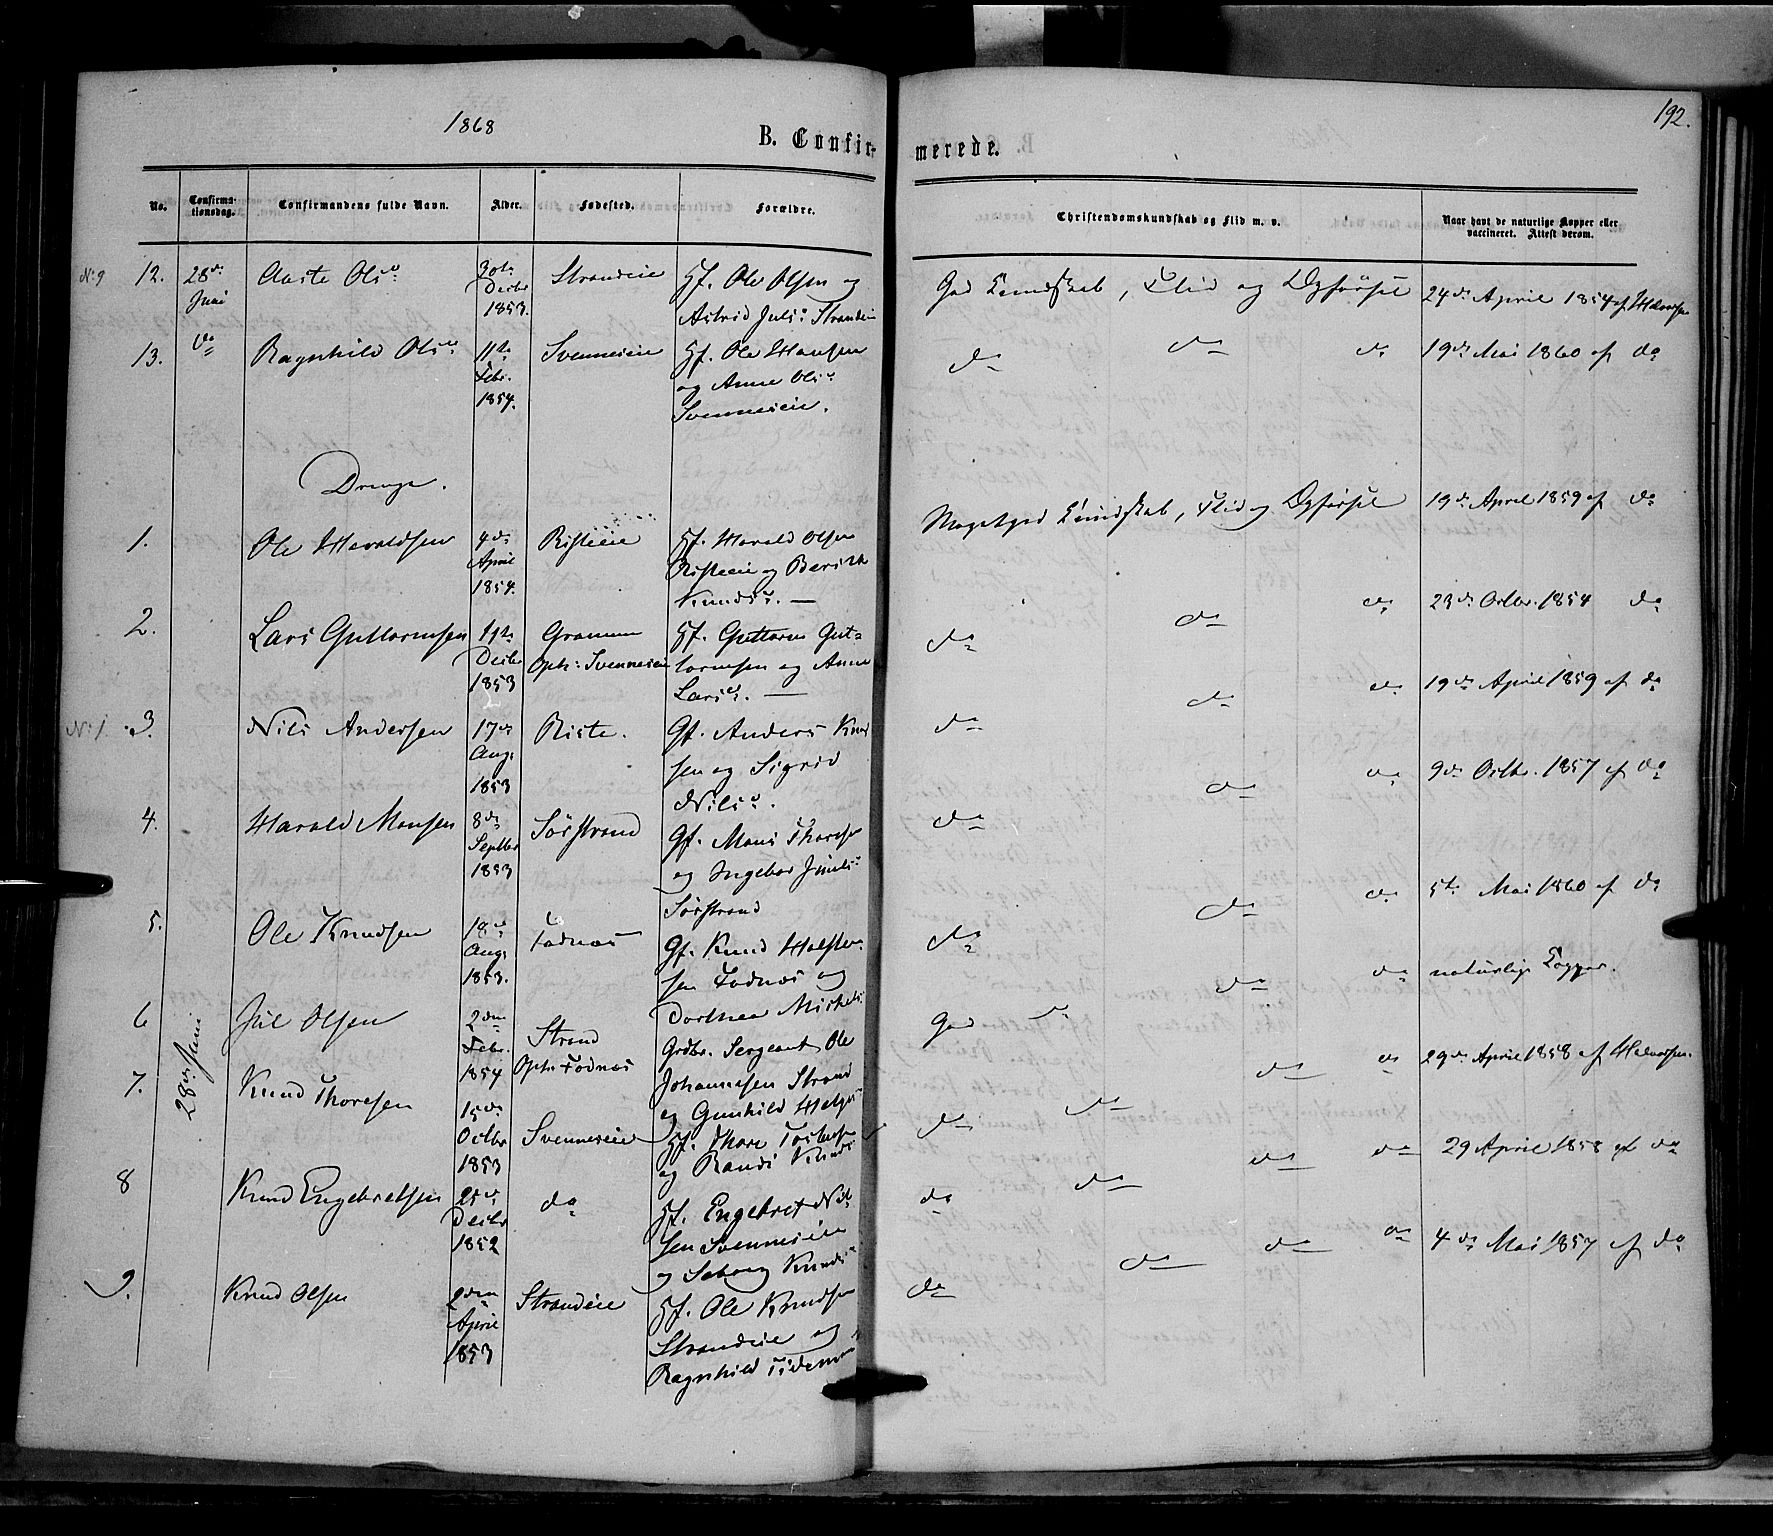 1868
B. Confir-
merede.
192.
No.
Confirma-
tionsdag.
Confirmandens fulde Navn.
Alder.
Fødested.
Forældre.
Christendomskundskab og Flid m. v.
Naar havt de naturlige Kopper eller
vaccineret. Attest derom.
No 9 12. 28de Juni Aaste Olsd. 30te Decbr 1853. Strandeie Hf. Ole Olsen og
Astrid Julsd. Strandeie
God Kundskab, Flid og Opførsel 24de April 1854 af Halvorsen
13. do Ragnhild Olsd. 11te Febr. 1854. Svenneseie Hf. Ole Hansen
og Anne Olsd.
Svenneseie.
do do do 19de Mai 1860 af do
Drenge.
1. Ole Haraldsen 4de April 1854. Risteeie Hf. Harald Olsen
Risteeie og Berith
Knudsd. —
Meget god Kundskab, Flid og Opførsel 19de April 1859 af do
2. Lars Guttormsen 11te Decbr 1853 Gramum
Oph: Svenneseie Hf. Guttorm Gut-
tormsen og Anne
Larsd. —
do do do 23de Octbr. 1854 do
No 1. 3. Nils Andersen 17de Aug. 1853 Riste. Gf. Anders Knud
sen og Sigrid
Nilsd.
do do do 19de April 1859 af do
4. Harald Monsen 8de Septbr 1853 Sørstrand Gf. Mons Thoresen
og Ingebor Juulsd.
Sørstrand
do do do 9de Octbr. 1857 af do
5. Ole Knudsen 18de Aug. 1853. Fodnæs Gf. Knud Halsten-
sen Fodnæs og
Dorthea Mikkels.
do do do 5te Mai 1860 af do
6 Jul Olsen 2den Febr. 1854 Strand
Oph: Fodnæs Grdbr. Sergeant Ole
Johannesen Strand
og Gunhild Helges
God do do do naturlige Kopper.
28de Juni
7. Knud Thoresen 15de Octbr 1853 Svenneseie Hf. Thore Tostensen
og Randi Knuds
do do do do 29de April 1858 af Halvorsen.
8 Knud Engebretsen 25de Decbr 1852 do Hf. Engebret Nil-
sen Svenneseie
og Seborg Knudsd.
do do do do 29 April 1858 af do
9. Knud Olsen 2den April 1853 Strandeie Hf. Ole Knudsen
Strandeie og
Ragnhild Tideman
do do do do 4de Mai 1857 af do